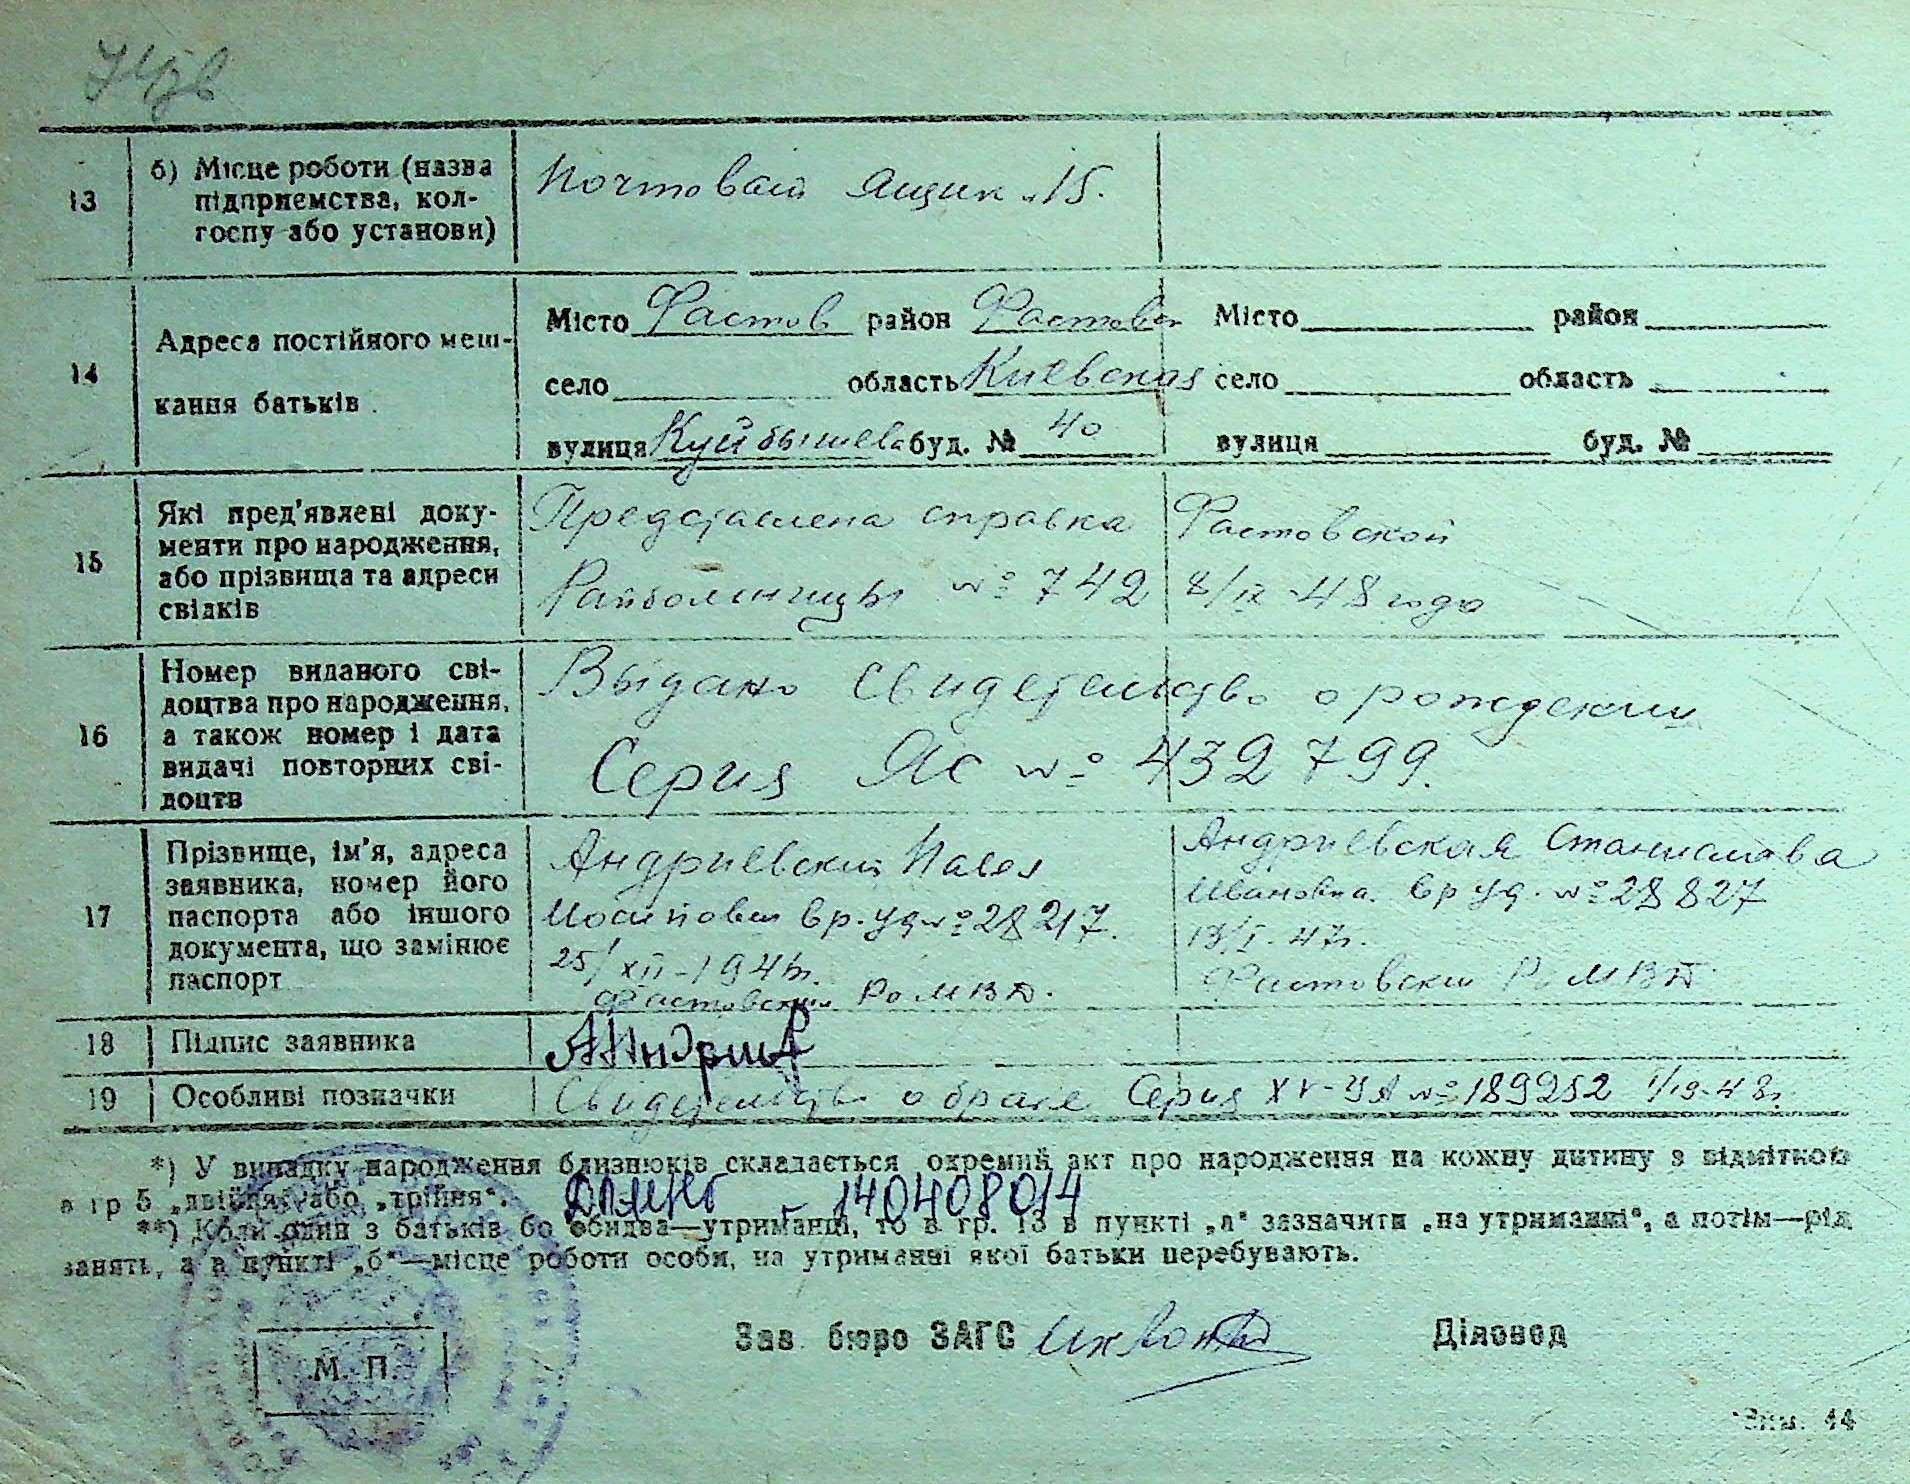 13
б) Місце роботи (назва
підприємства, кол-
госпу або установи)
Почтовый ящик 15.
14
Адреса постійного меш-
кання батьків
Місто Фастов район Фастовск
село область Киевская
вулиця Куйбышева буд. № 40
Місто район
село область
вулиця буд. №
15
Які пред'явлені доку-
менти про народження,
або прізвища та адреси
свідків
Представлена справка Фастовской
Райбольницы № 742 8/IX-48 года
16
Номер виданого сві-
доцтва про народження,
а також номер і дата
видачі повторних сві-
доцтв
Выдано свидетельство о рождении
Серия ЯС № 432799.
17
Прізвище, ім'я, адреса
заявника, номер його
паспорта або іншого
документа, що замінює
паспорт
Андриевский Павел
Иосипович вр. уд № 28217.
25/XII-194
Фастовский Ро МВД.
Андриевская Станислава
Ивановна вр уд. № 28827
13/I-47г.
Фастовский Ро МВД
18
Підпис заявника
19
Особливі позначки
Свидетельство о браке Серия XV-УА № 189252 1/IX-48г.
*) У випадку народження близнюків складається окремий акт про народження на кожну дитину з відміткою
в гр 5 „двійня“ або „трійня“.
140408014
**) Коли один з батьків бо обидва—утриманці, то в гр. 13 в пункті „а“ зазначити „на утриманні“, а потім—рід
занять, а в пункті „б“—місце роботи особи, на утриманні якої батьки перебувають.
Зав. бюро ЗАГС
Діловод
М. П.
Зам. 44